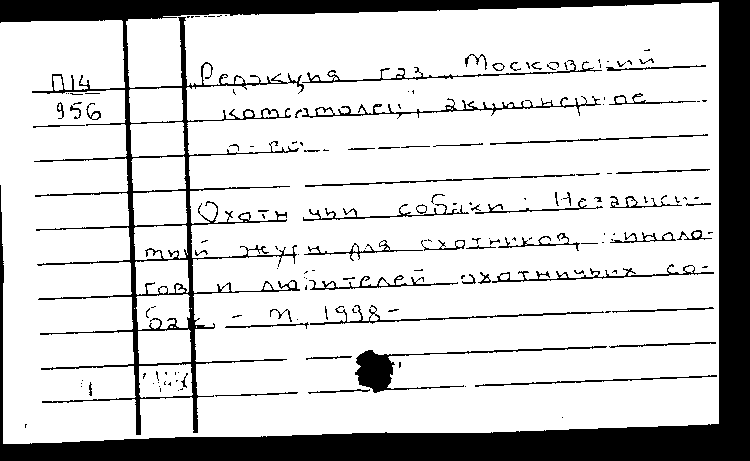 П14
956
„Редакция газ. „Московский
комсомолец", акционерное
о-во.
Охотничьи собаки: Независи-
мый журн. для охотников, киноло-
гов и любителей охотничьих со-
бак. - М., 1998-